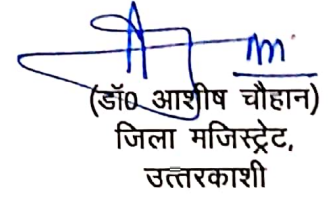 (डॉ0 आशीष चौहान)
जिला मजिस्ट्रेट,
उत्तरकाशी